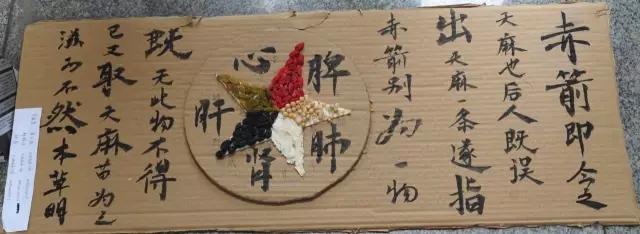 赤箭即今之
天麻也后人既误
出天麻一条遂指
赤箭别为一物
心
脾
肝
肺
肾
既无此物不得
已又取天麻苗为之
滋为不然本草明